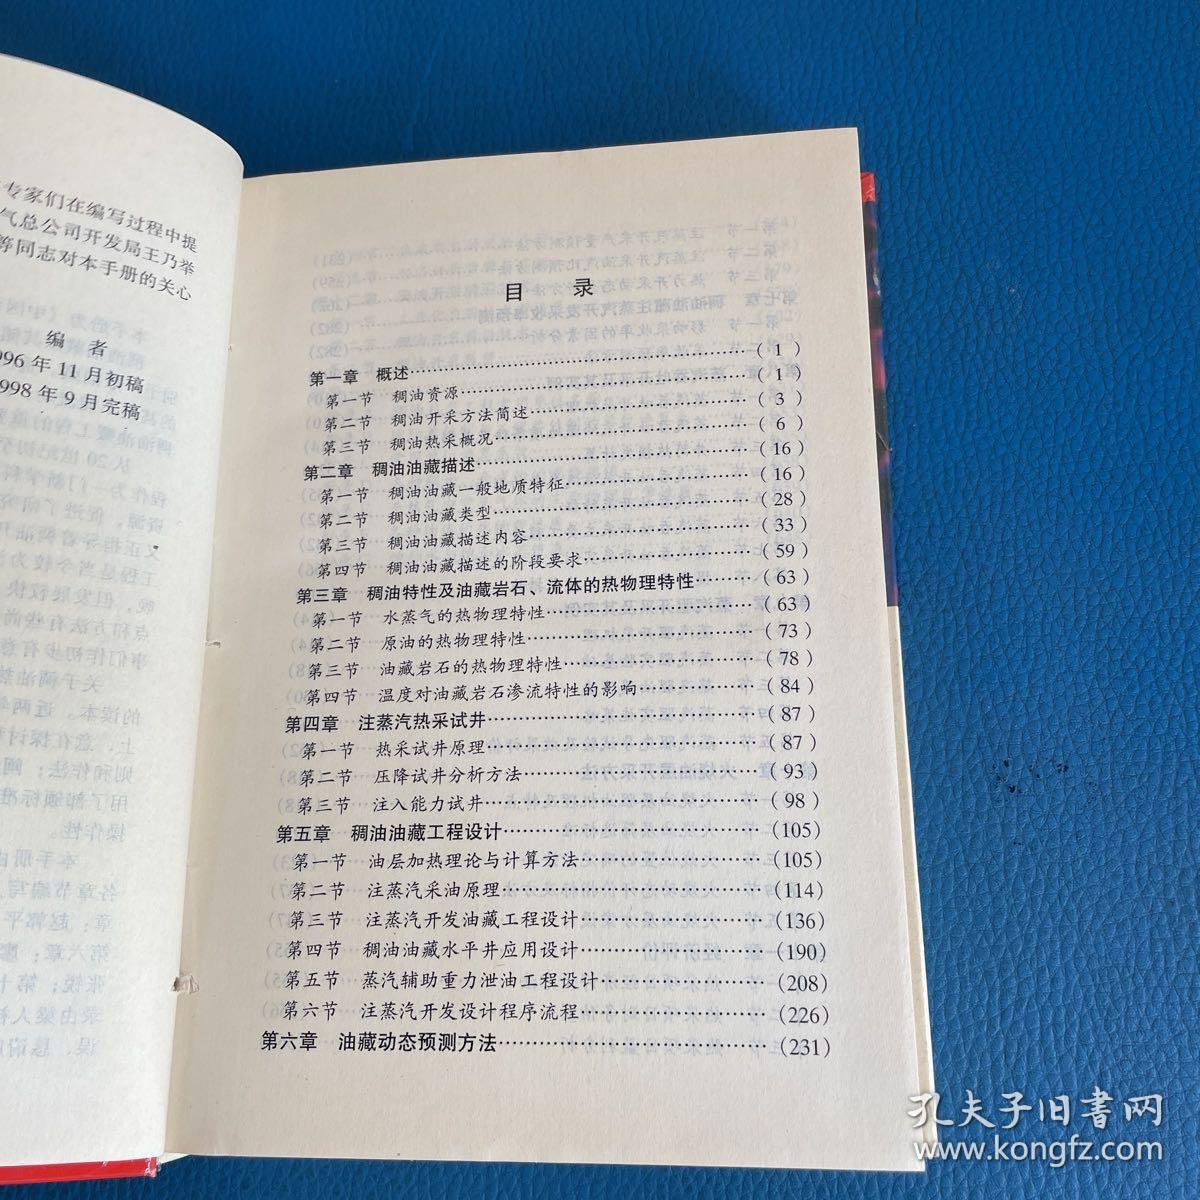 专家们在编写过程中提
气总公司开发局王乃举
等同志对本手册的关心
编 者
996 年 11 月初稿
998 年 9 月完稿
目 录
第一章 概述……………………………………( 1 )
第一节 稠油资源……………………………………( 1 )
第二节 稠油开采方法简述……………………………………( 3 )
第三节 稠油热采概况……………………………………( 6 )
第二章 稠油油藏描述……………………………………( 16 )
第一节 稠油油藏一般地质特征……………………………………( 16 )
第二节 稠油油藏类型……………………………………( 28 )
第三节 稠油油藏描述内容……………………………………( 33 )
第四节 稠油油藏描述的阶段要求……………………………………( 59 )
第三章 稠油特性及油藏岩石、流体的热物理特性……………………( 63 )
第一节 水蒸气的热物理特性……………………………………( 63 )
第二节 原油的热物理特性……………………………………( 73 )
第三节 油藏岩石的热物理特性……………………………………( 78 )
第四节 温度对油藏岩石渗流特性的影响……………………………( 84 )
第四章 注蒸汽热采试井……………………………………( 87 )
第一节 热采试井原理……………………………………( 87 )
第二节 压降试井分析方法……………………………………( 93 )
第三节 注入能力试井……………………………………( 98 )
第五章 稠油油藏工程设计……………………………………(105)
第一节 油层加热理论与计算方法……………………………………(105)
第二节 注蒸汽采油原理……………………………………(114)
第三节 注蒸汽开发油藏工程设计……………………………………(136)
第四节 稠油油藏水平井应用设计……………………………………(190)
第五节 蒸汽辅助重力泄油工程设计……………………………………(208)
第六节 注蒸汽开发设计程序流程……………………………………(226)
第六章 油藏动态预测方法……………………………………(231)
孔夫子旧书网
www.kongfz.com